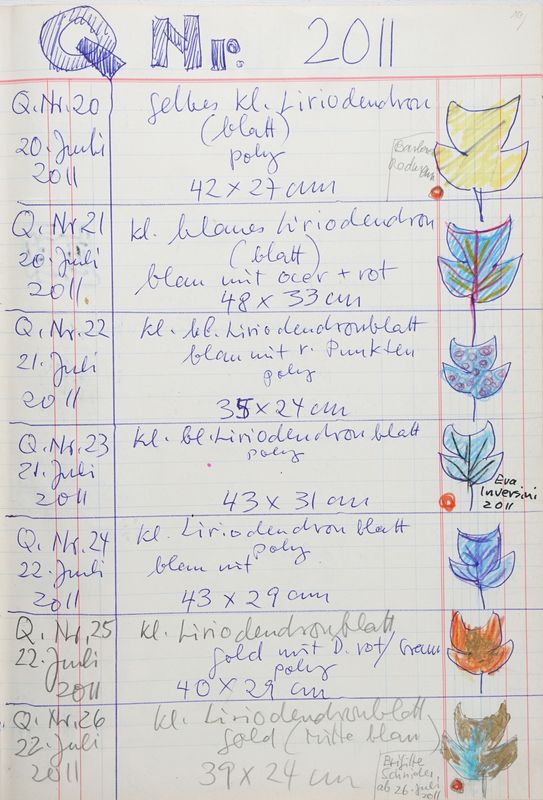 Q Nr. 2011
Q. Nr. 20
20. Juli
2011
gelbes kl. Liriodendron
(blatt)
poly
42 x 27 cm
Barbara
Q. Nr. 21
20. Juli
2011
kl. blaues Liriodendron
(blatt)
blau mit ocer + rot
48 x 33 cm
Q. Nr. 22
21. Juli
2011
kl. bl. Liriodendronblatt
blau mit r. Punkten
poly
35 x 24 cm
Q. Nr. 23
21. Juli
2011
kl. bl. Liriodendronblatt
poly
43 x 31 cm
Eva
Inversini
2011
Q. Nr. 24
22. Juli
2011
kl. Liriodendronblatt
poly
blau mit
43 x 29 cm
Q. Nr. 25
22. Juli
2011
kl. Liriodendronblatt
gold mit D. rot/
poly
40 x 29 cm
Q. Nr. 26
22. Juli
2011
kl. Liriodendronblatt
gold (Mitte blau)
39 x 24 cm
Brigitte
Schnider
ab 26. Juli
2011